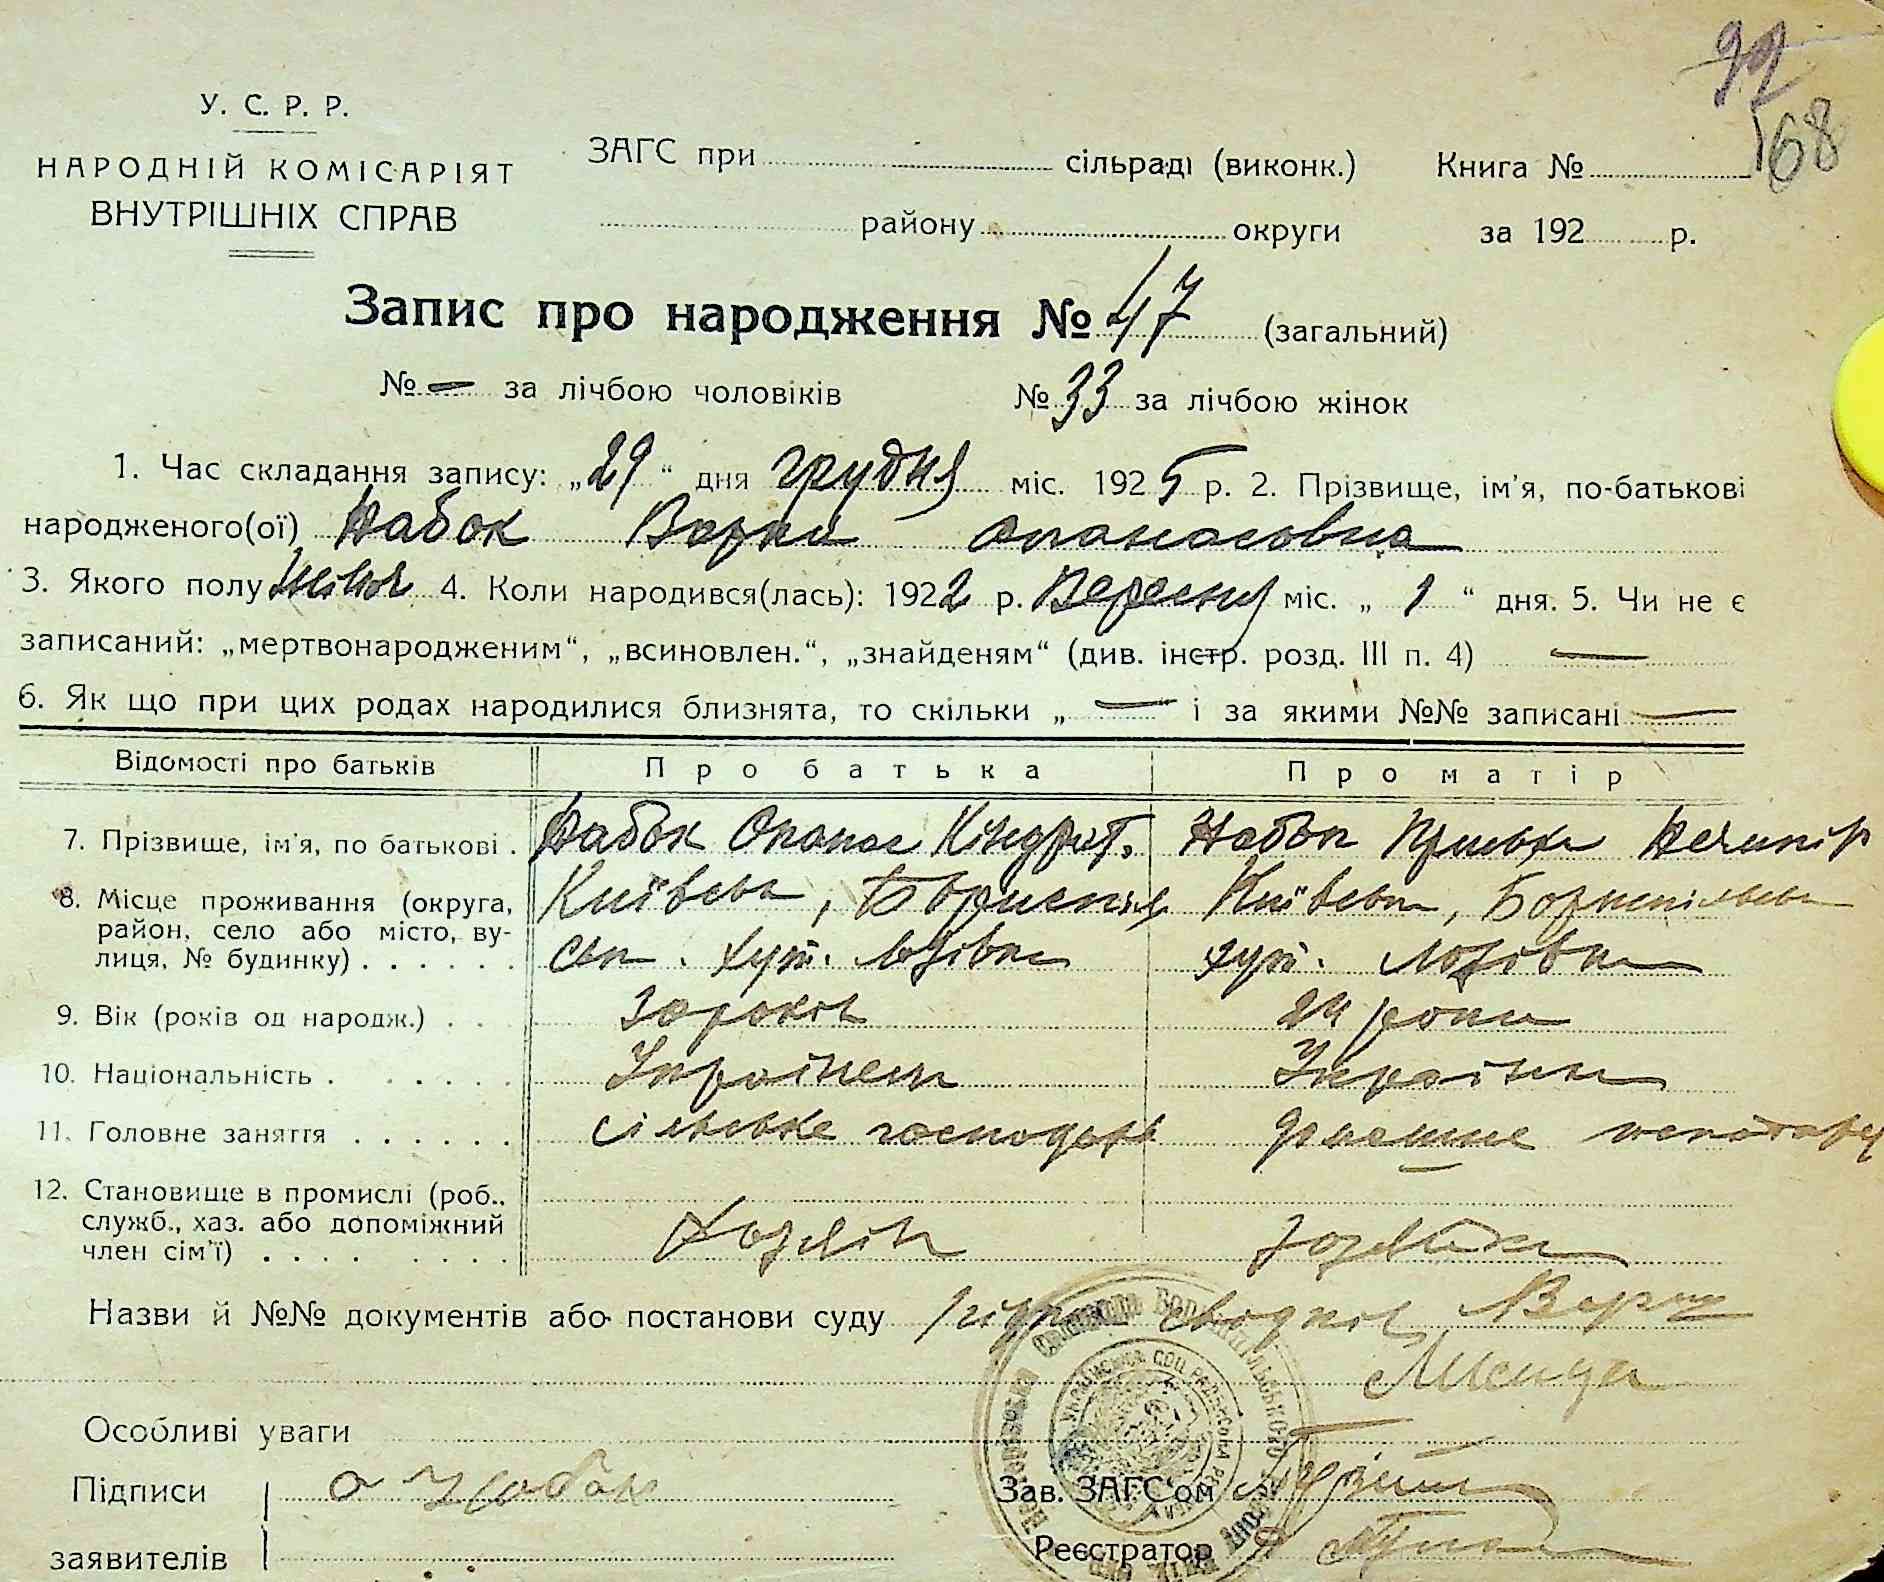 99
168
У. С. Р. Р.
НАРОДНІЙ КОМІСАРІЯТ
ВНУТРІШНІХ СПРАВ
ЗАГС при сільраді (виконк.) Книга №
району округи за 192 р.
Запис про народження № 47 (загальний)
№ — за лічбою чоловіків № 33 за лічбою жінок
1. Час складання запису: „29“ дня грудня міс. 1925 р. 2. Прізвище, ім'я, по-батькові
народженого(ої) Набок Варка Опанасовна
3. Якого полу жіноч 4. Коли народився(лась): 1922 р. Вересня міс. „1“ дня. 5. Чи не є
записаний: „мертвонародженим“, „всиновлен.“, „знайденям“ (див. інстр. розд. III п. 4) —
6. Як що при цих родах народилися близнята, то скільки „ — і за якими №№ записані —
Відомості про батьків Про батька Про матір
7. Прізвище, ім'я, по батькові . Набок Опанас Кіндрат. Набок Пріська Нечипір
8. Місце проживання (округа, район, село або місто, вулиця, № будинку) . . . . . . Київськ, Бориспіль Київська, Бориспільськ
ськ. хут. Лозівка хут. Лозівка
9. Вік (років од народж.) . . . 30 років 24 роки
10. Національність . . . . . . Українець Українка
11. Головне заняття . . . . . . сільське господар домашнє
12. Становище в промислі (роб., служб., хаз. або допоміжний член сім'ї) . . . . . . . . Хозяїн хозяйка
Назви й №№ документів або постанови суду згідно
Особливі уваги
Підписи О Набок Зав. ЗАГС'ом
заявителів Реєстратор